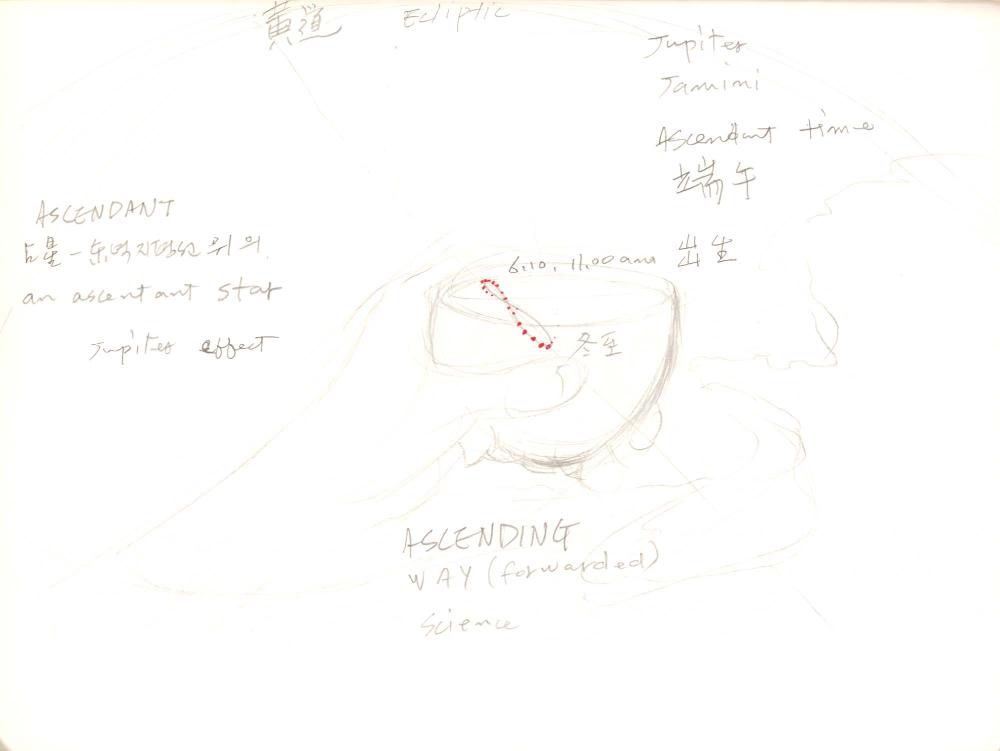 黃道 Ecliptic
Jupiter
Jamini
Ascendant time
端午
ASCENDANT
占星 - 동녁지평선 위의
an ascentant star
Jupiter effect
6.10, 11.00 am 出生
冬至
ASCENDING
WAY (forwarded)
Science